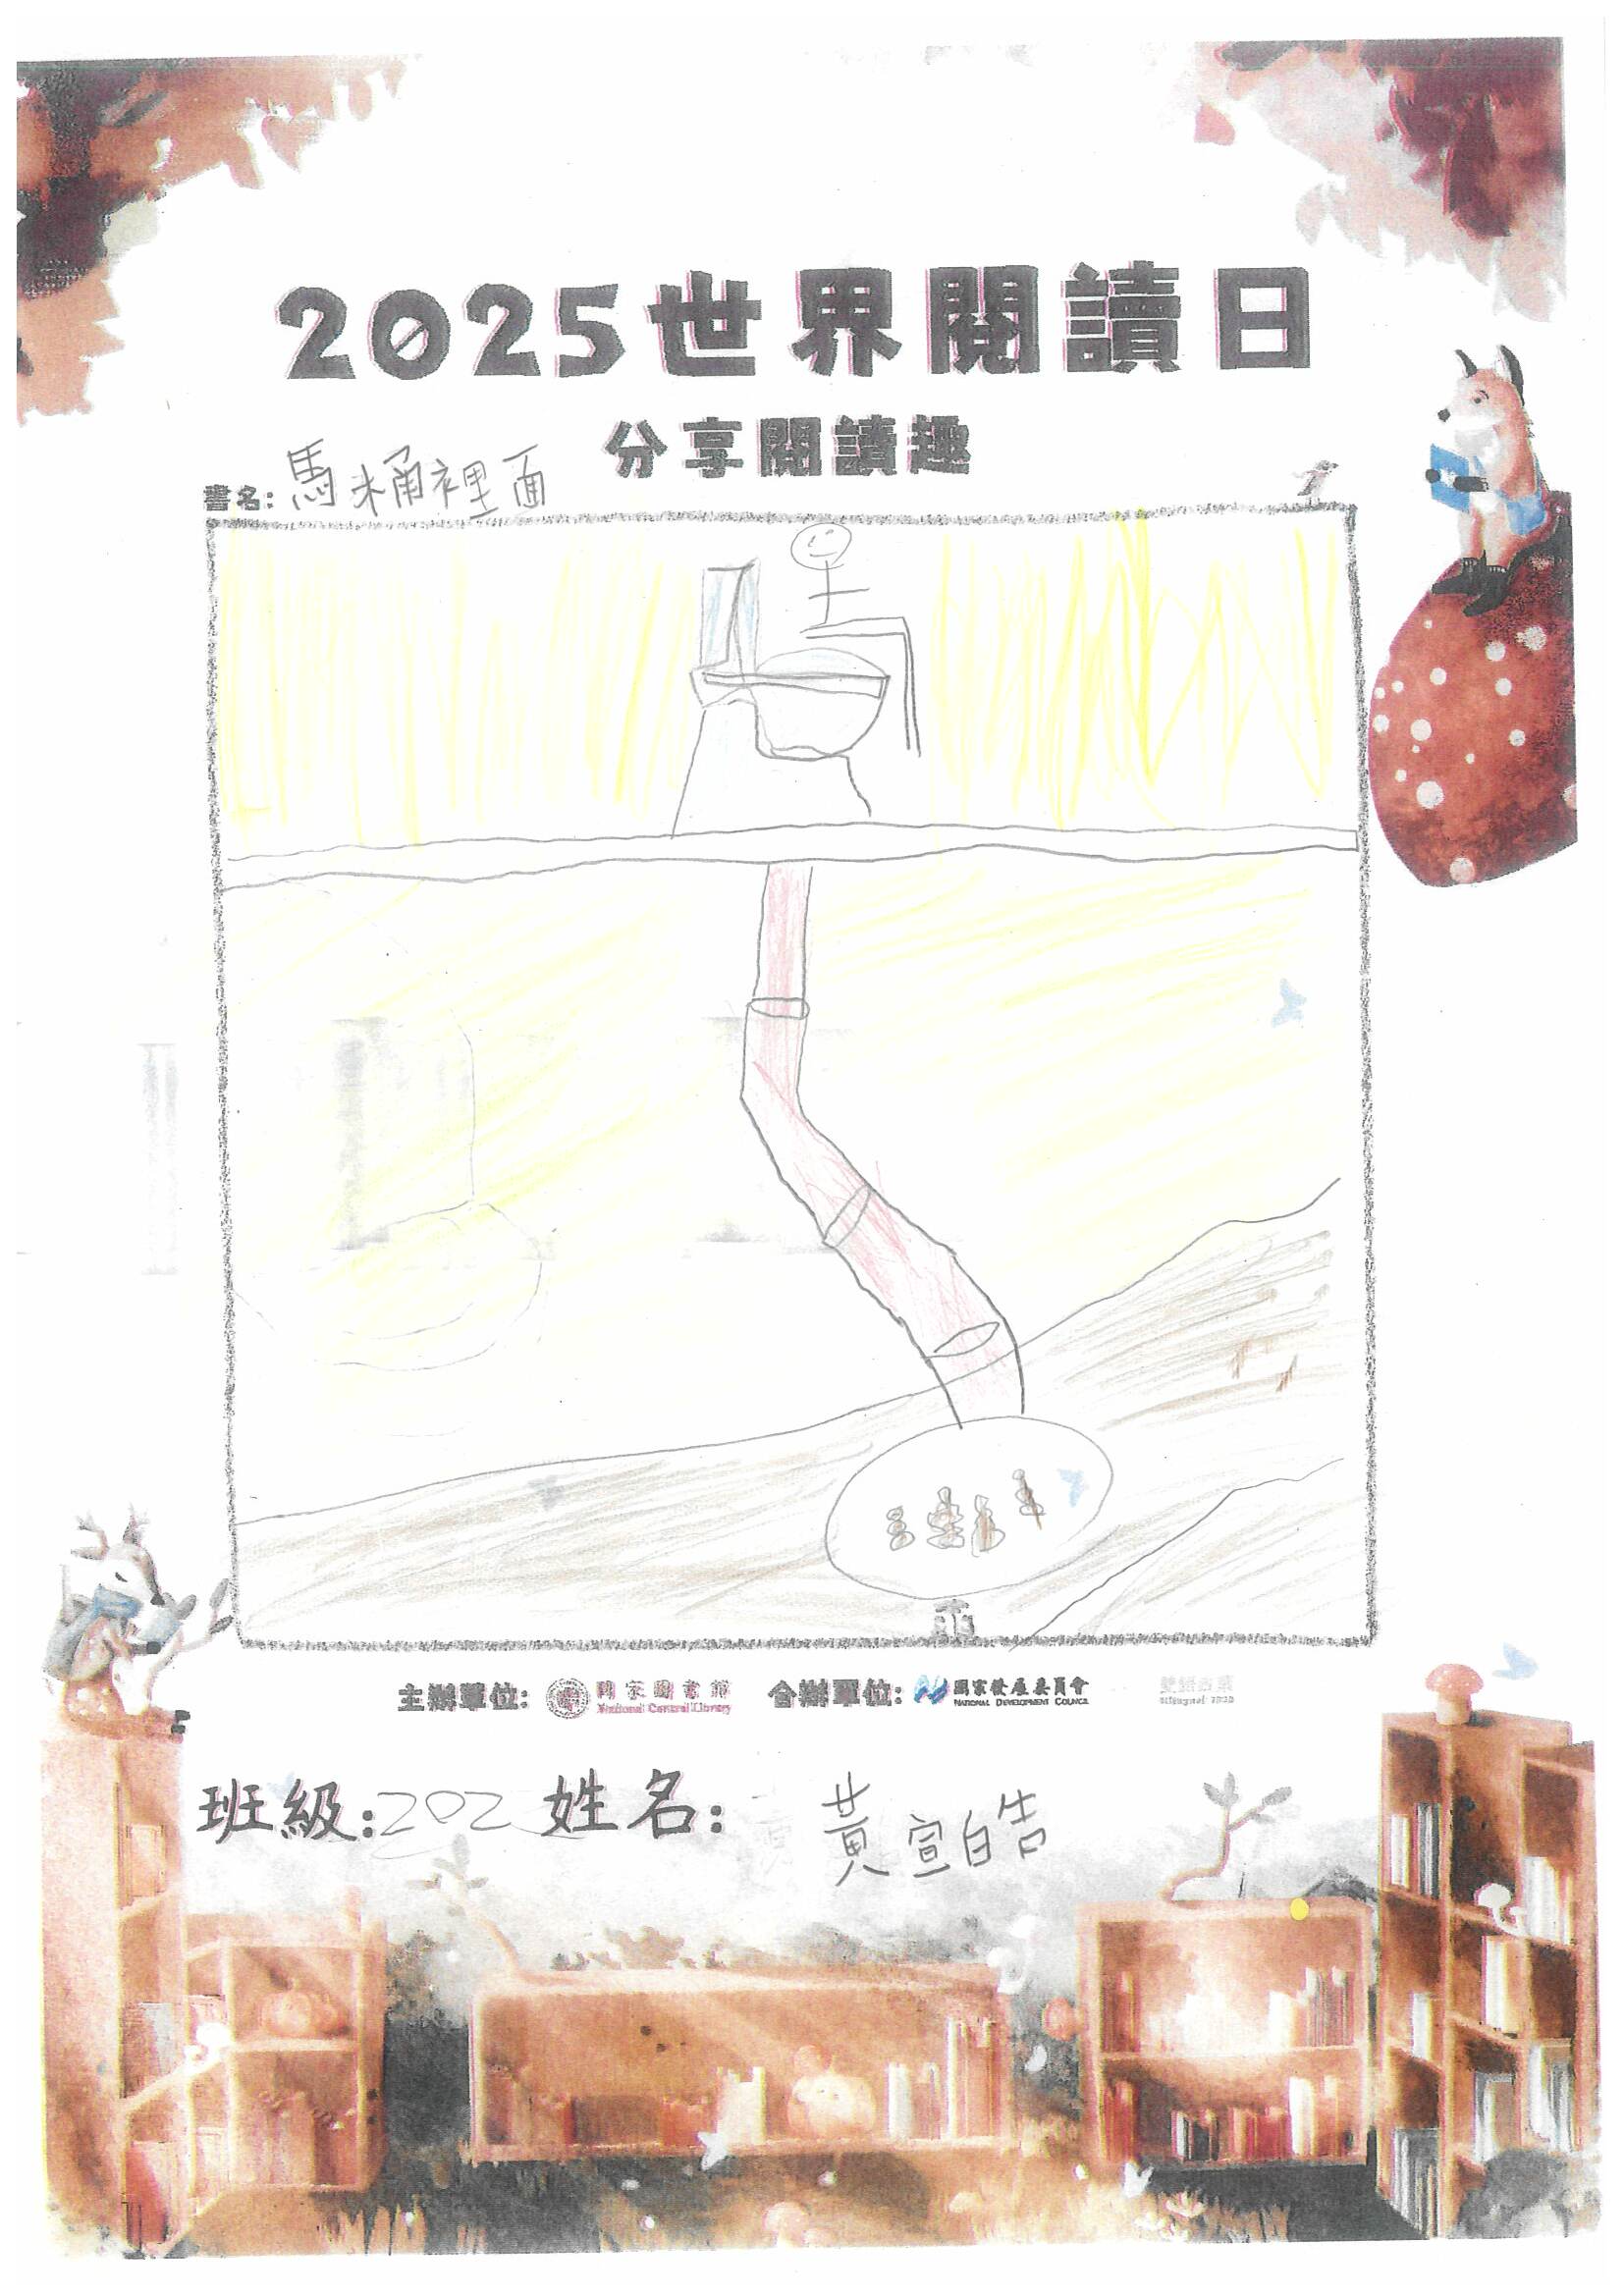 2025世界閱讀日
分享閱讀趣
書名:馬桶裡面
主辦單位: 國家圖書館 National Central Library 合辦單位: 國家發展委員會 NATIONAL DEVELOPMENT COUNCIL
班級:202 姓名: 黃宣皓